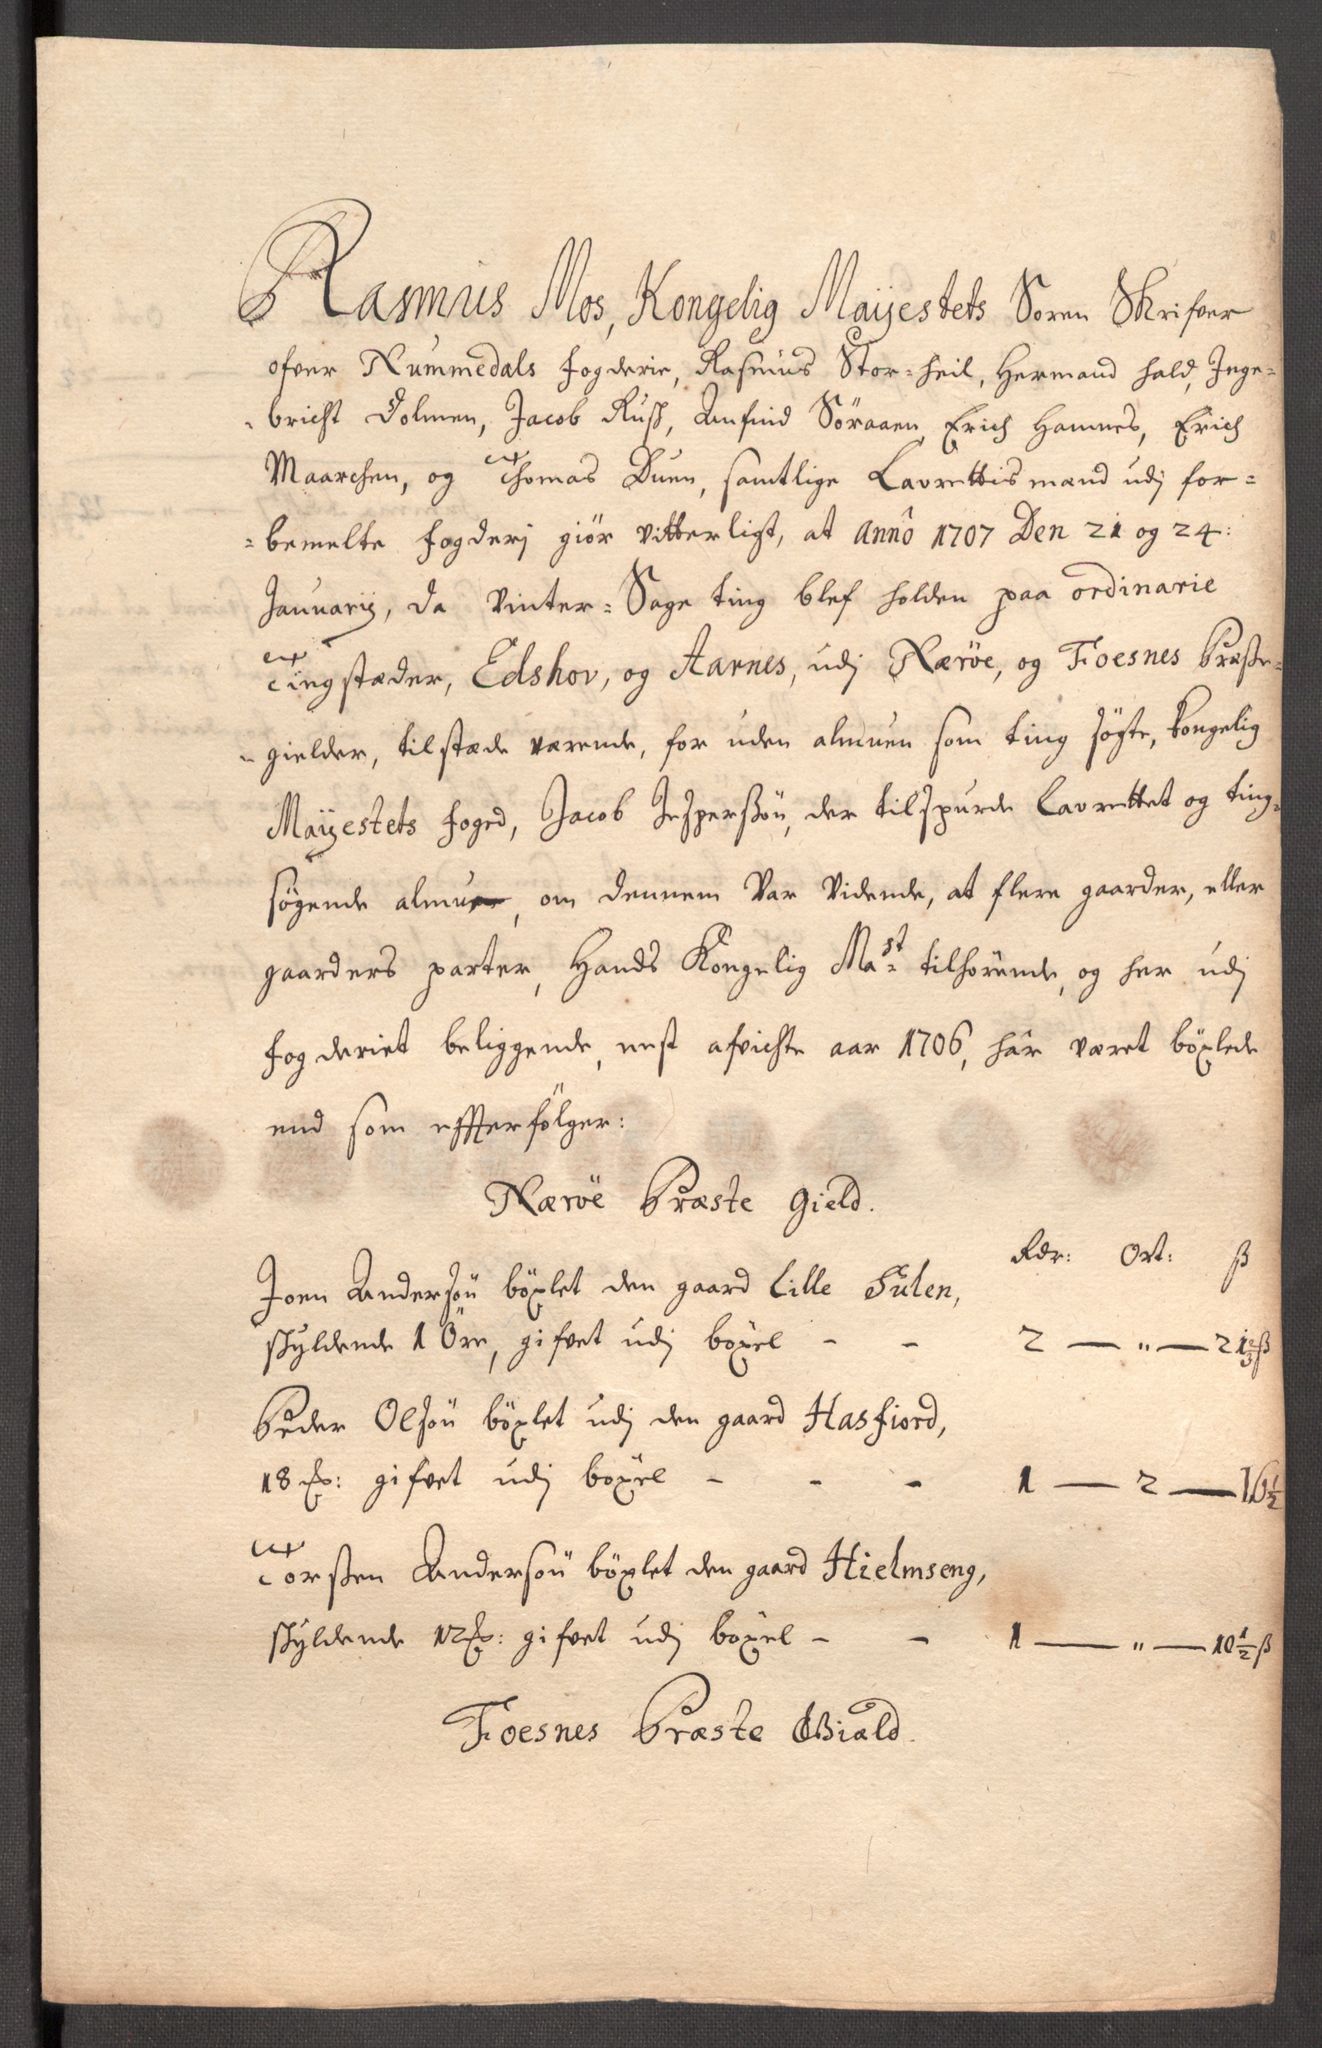 Rasmus Mos, Kongelig Maijestets Soren Skrifver
ofver Nummedals fogderie, Rasmus Stor-heil, Hermand hald, Inge-
-bricht Dolmen, Jacob Russ, Amfind Söraaen, Erich Hamnes, Erich
Maarchen, og Thomas Duen, samtlige Lavrettis mænd udj for-
-bemelte fogderj giör vitterligt, at Anno 1707 Den 21 og 24:
Januarij, da vinter-Sage ting blef holden paa ordinarie
Tingstæder, Edshov, og Aarnes, udj Nærøe, og Foesnes Præste-
-gielder, tilstæde værende, for uden almuen som ting søgte, kongelig
Maijestets foged, Jacob Jesperssön, der tilspurde Lavrettet og ting-
søgende almue, om dennem var vidende, at flere gaarder, eller
gaarders parter, Hands Kongelig Ma:st tilhörende, og her udj
fogderiet beliggende, nest afvichte aar 1706, hâr været böxlede
end som effterfölger:
Nærøe Præste Gield.
Rdr: Ort: ß
Joen Andersön böxlet den gaard Lille Sulen,
skyldende 1 Öre, gifvet udj boxel - - 2 — " — 21 2/3 ß
Peder Olsön böxlet udj den gaard Hasfiord,
18 : gifvet udj boxel - - - 1 — 2 — 16 1/2
Torsten Andersön böxlet den gaard Hielmseng,
skyldende 12 : gifvet udj boxel - - 1 — " — 10 1/2 ß
Foesnes Præste Giæld.